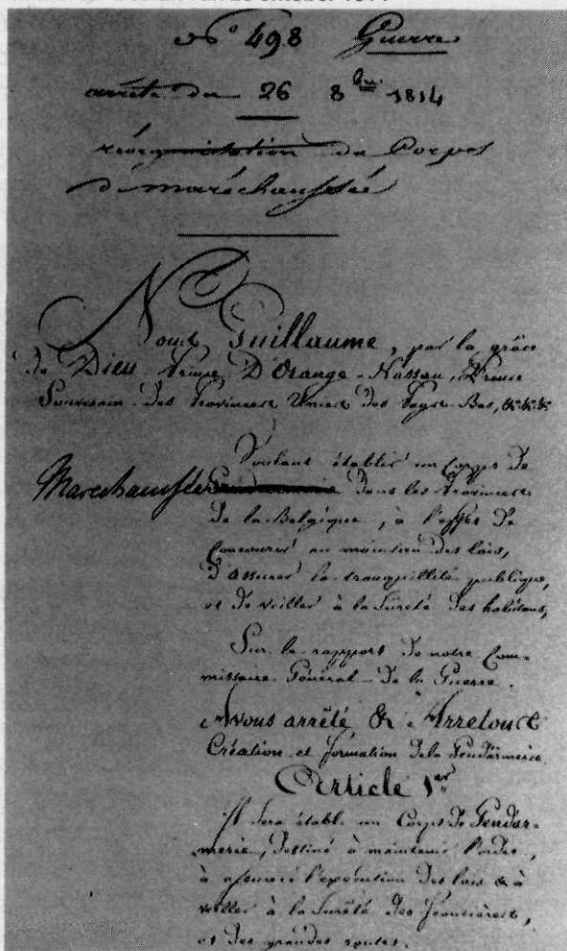 N° 498 Guerre
arrêté du 26 8bre 1814
réorganisation du Corps
de maréchaussée
Nous Guillaume, par la grâce
de Dieu Prince D'Orange-Nassau, Prince
Souverain des Provinces Unies des Pays-Bas, &c &c &c
Voulant établir un Corps de
Marechaussée Gendarmerie dans les Provinces
de la Belgique, à l'effet de
concourir au maintien des lois,
d'assurer la tranquillité publique,
et de veiller à la Sûreté des habitans,
Sur le rapport de notre Com-
missaire Général de la Guerre.
Avons arrêté & Arretons
Création et formation de la Gendarmerie
Article 1er
Il sera établi un Corps de Gendar-
merie, destiné à maintenir l'ordre,
à assurer l'exécution des lois & à
veiller à la Sûreté des frontières,
et des grandes routes.